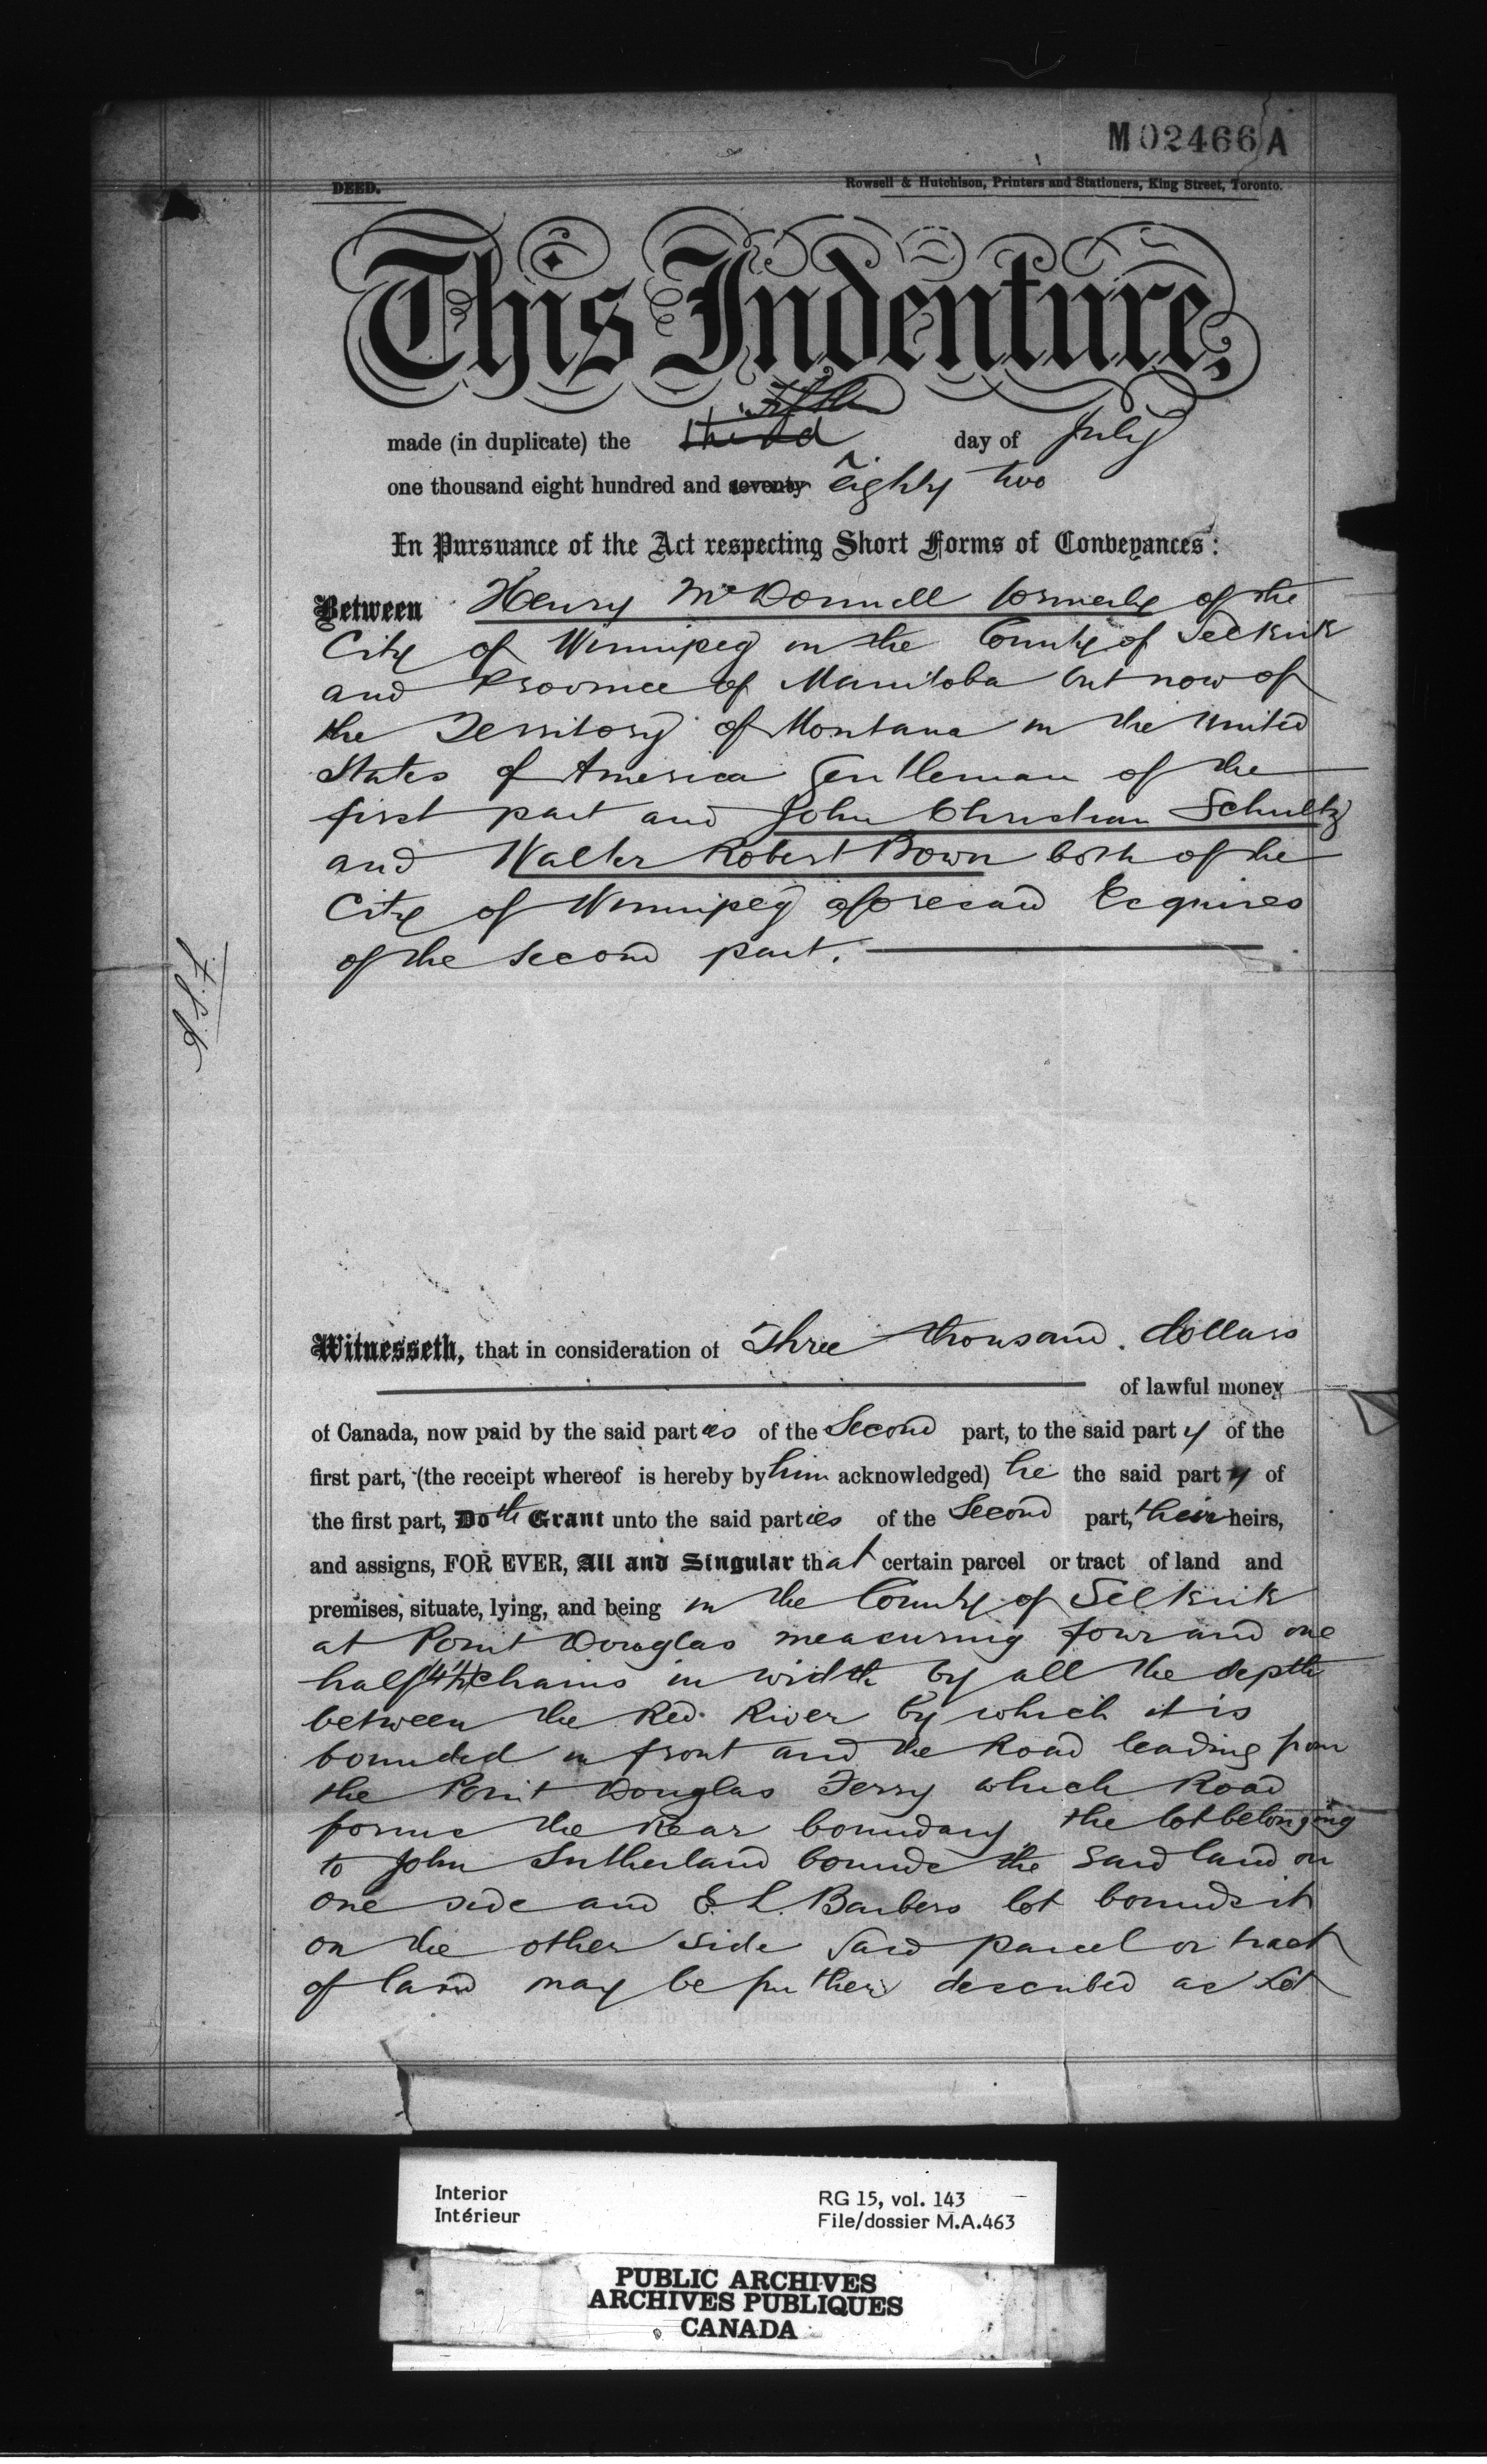 M 02466 A
DEED.
Rowsell & Hutchison, Printers and Stationers, King Street, Toronto.
This Indenture,
Fifth
made (in duplicate) the third day of July
one thousand eight hundred and seventy eighty two
In Pursuance of the Act respecting Short Forms of Conveyances:
Between Henry McDonnell formerly of the
City of Winnipeg in the County of Selkirk
and Province of Manitoba but now of
the Territory of Montana in the United
States of America Gentleman of the
first part and John Christian Schultz
and Walter Robert Bown both of the
City of Winnipeg aforesaid Esquires
of the second part.
Witnesseth, that in consideration of Three thousand dollars
of lawful money
of Canada, now paid by the said parties of the Second part, to the said party of the
first part, (the receipt whereof is hereby by him acknowledged) he the said party of
the first part, Doth Grant unto the said parties of the Second part, their heirs,
and assigns, FOR EVER, All and Singular that certain parcel or tract of land and
premises, situate, lying, and being in the County of Selkirk
at Point Douglas measuring four and one
half (4½) chains in width by all the depth
between the Red River by which it is
bounded in front and the Road leading from
the Point Douglas Ferry which Road
forms the Rear boundary the lot belonging
to John Sutherland bounds the said land on
one side and E. L. Barbers lot bounds it
on the other side Said parcel or tract
of land may be further described as Lot
Interior
Intérieur
RG 15, vol. 143
File/dossier M.A.463
PUBLIC ARCHIVES
ARCHIVES PUBLIQUES
CANADA